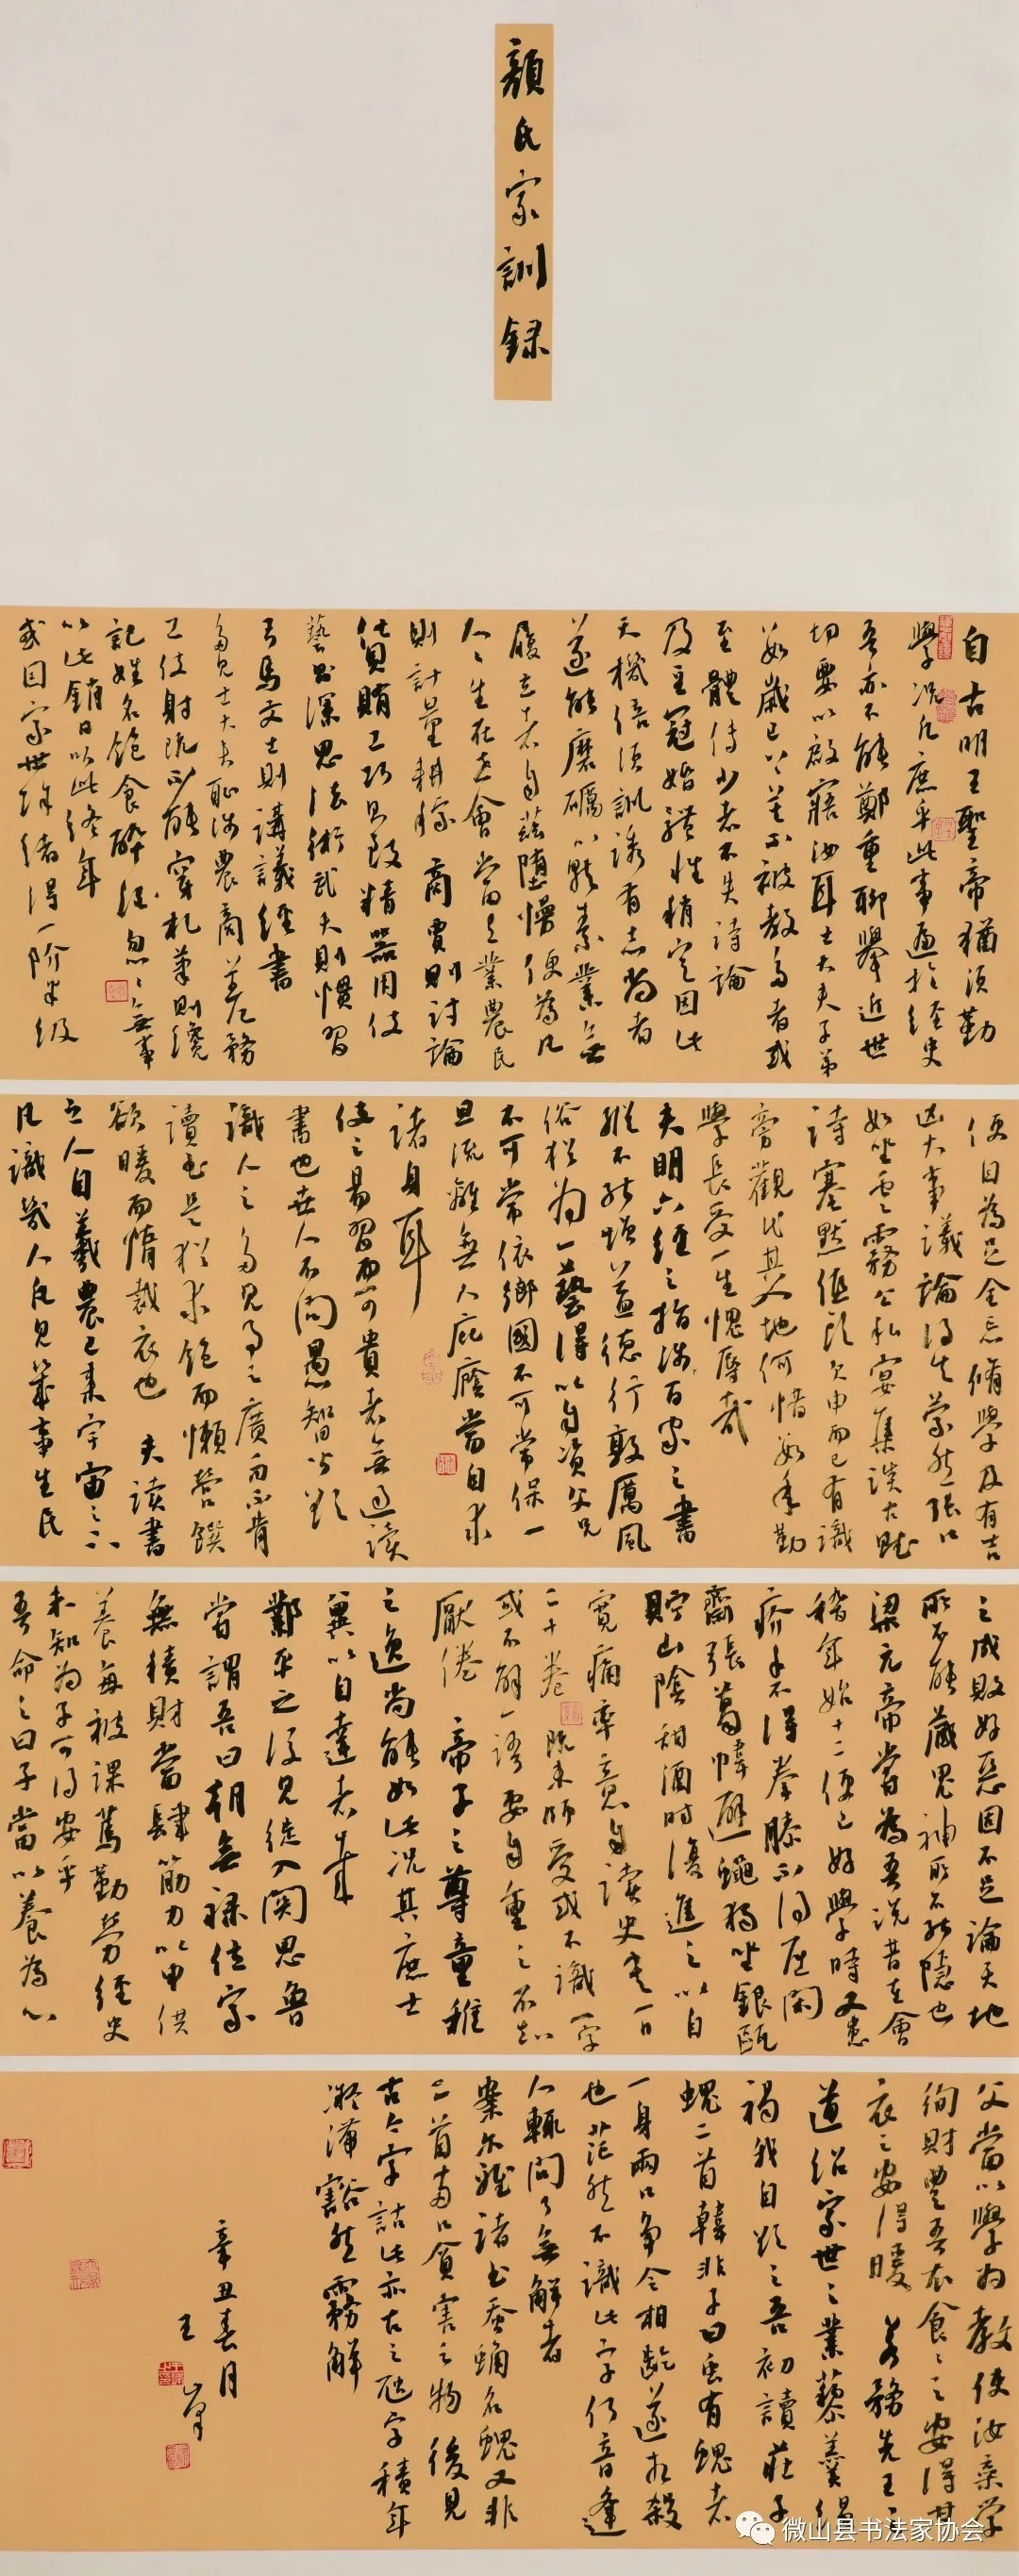 顔氏家訓録
自古明王聖帝猶須勤
學況凡庶乎此事遍於經史
吾亦不能鄭重聊舉近世
切要以啟寤汝耳士大夫子弟
數歲已上莫不被教多者或
至禮傳少者不失詩論
及至冠婚體性稍定因此
天機倍須訓誘有志尚者
遂能磨礪以就素業無
履立者自茲墮慢便為凡
人人生在世會當有業農民
則計量耕稼商賈則討論
貨賄工巧則致精器用伎
藝則深思法術武夫則慣習
弓馬文士則講議經書
多見士大夫恥涉農商羞務
工伎射既不能穿札筆則纔
記姓名飽食醉酒忽忽無事
以此銷日以此終年
或因家世餘緒得一階半級
便自為足全忘脩學及有吉
凶大事議論得失蒙然張口
如坐雲霧公私宴集談古賦
詩塞默低頭欠申而已有識
旁觀代其入地何惜數年勤
學長受一生愧辱哉
夫明六經之指涉百家之書
縱不能增益德行敦厲風
俗猶為一藝得以自資父兄
不可常依鄉國不可常保一
旦流離無人庇廕當自求
諸身耳
伎之易習而可貴者無過讀
書也世人不問愚智皆欲
識人之多見事之廣而不肯
讀書是猶求飽而懶營饌
欲暖而惰裁衣也夫讀書
之人自羲農已來宇宙之下
凡識幾人凡見幾事生民
之成敗好惡固不足論天地
所不能藏鬼神所不能隱也
梁元帝嘗為吾說昔在會
稽年始十二便已好學時又患
疥手不得拳膝不得屈閑
齋張葛幃避蠅獨坐銀甌
貯山陰甜酒時復進之以自
寬痛率意自讀史書一日
二十卷既未師受或不識一字
或不解一語要自重之不知
厭倦帝子之尊童稚
之逸尚能如此況其庶士
冀以自達者哉
鄴平之後見徙入關思魯
嘗謂吾曰朝無祿位家
無積財當肆筋力以申供
養每被課篤勤勞經史
未知為子可得安乎
吾命之曰子當以養為心
父當以學為教使汝棄學
徇財豐吾衣食食之安得甘
衣之安得暖若務先王之
道紹家世之業藜羹縕
褐我自欲之吾初讀莊子
螝二首韓非子曰蟲有螝者
一身兩口爭食相齕遂相殺
也茫然不識此字何音逢
人輒問了無解者
案爾雅諸書蠶蛹名螝又非
二首兩口貪害之物後見
古今字詁此亦古之虺字積年
凝滯豁然霧解
辛丑春月
王
微山县书法家协会